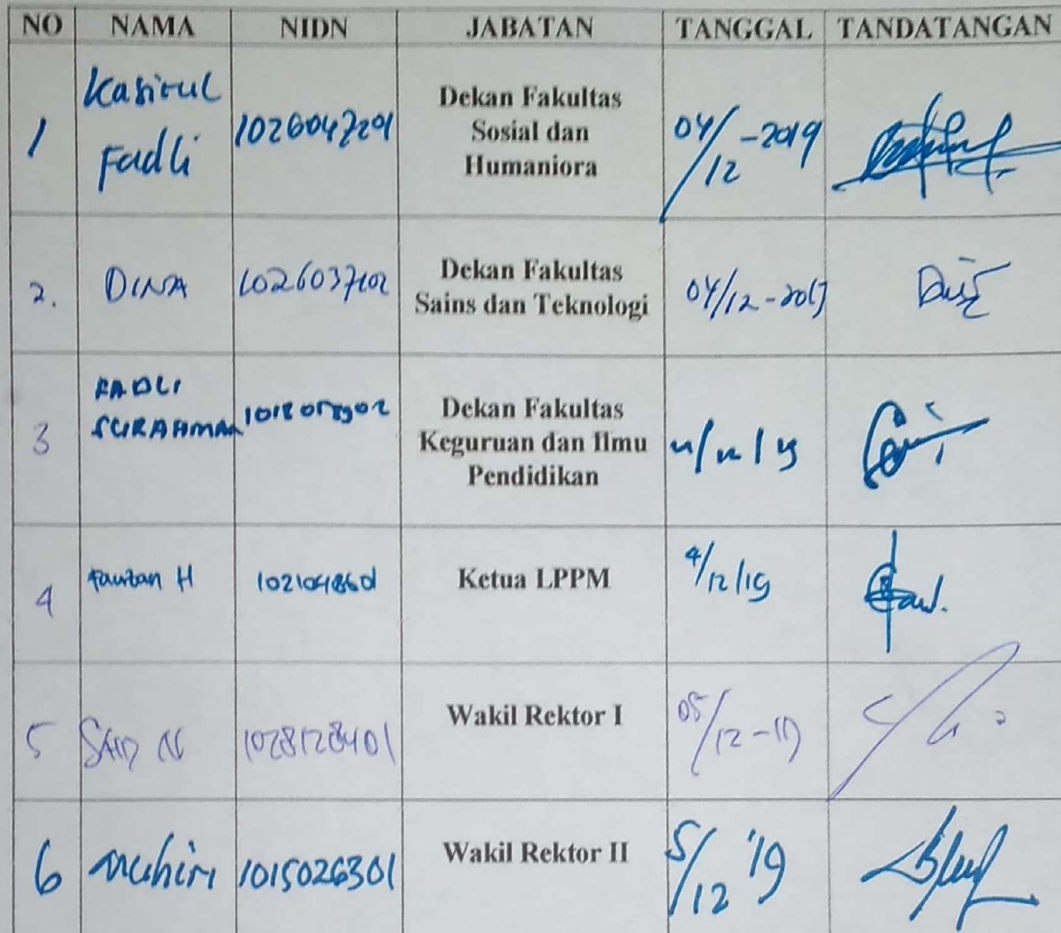 NO NAMA NIDN JABATAN TANGGAL TANDATANGAN
1 Kasirul Fadli 1026047201 Dekan Fakultas Sosial dan Humaniora 04/12-2019
2. DINA 1026037102 Dekan Fakultas Sains dan Teknologi 04/12-2019
3 FADLI SURAHMAN Dekan Fakultas Keguruan dan Ilmu Pendidikan
4 Fauzan H Ketua LPPM 4/12/19
5 1028128401 Wakil Rektor I 05/12-19
6 1015026301 Wakil Rektor II 5/12 '19